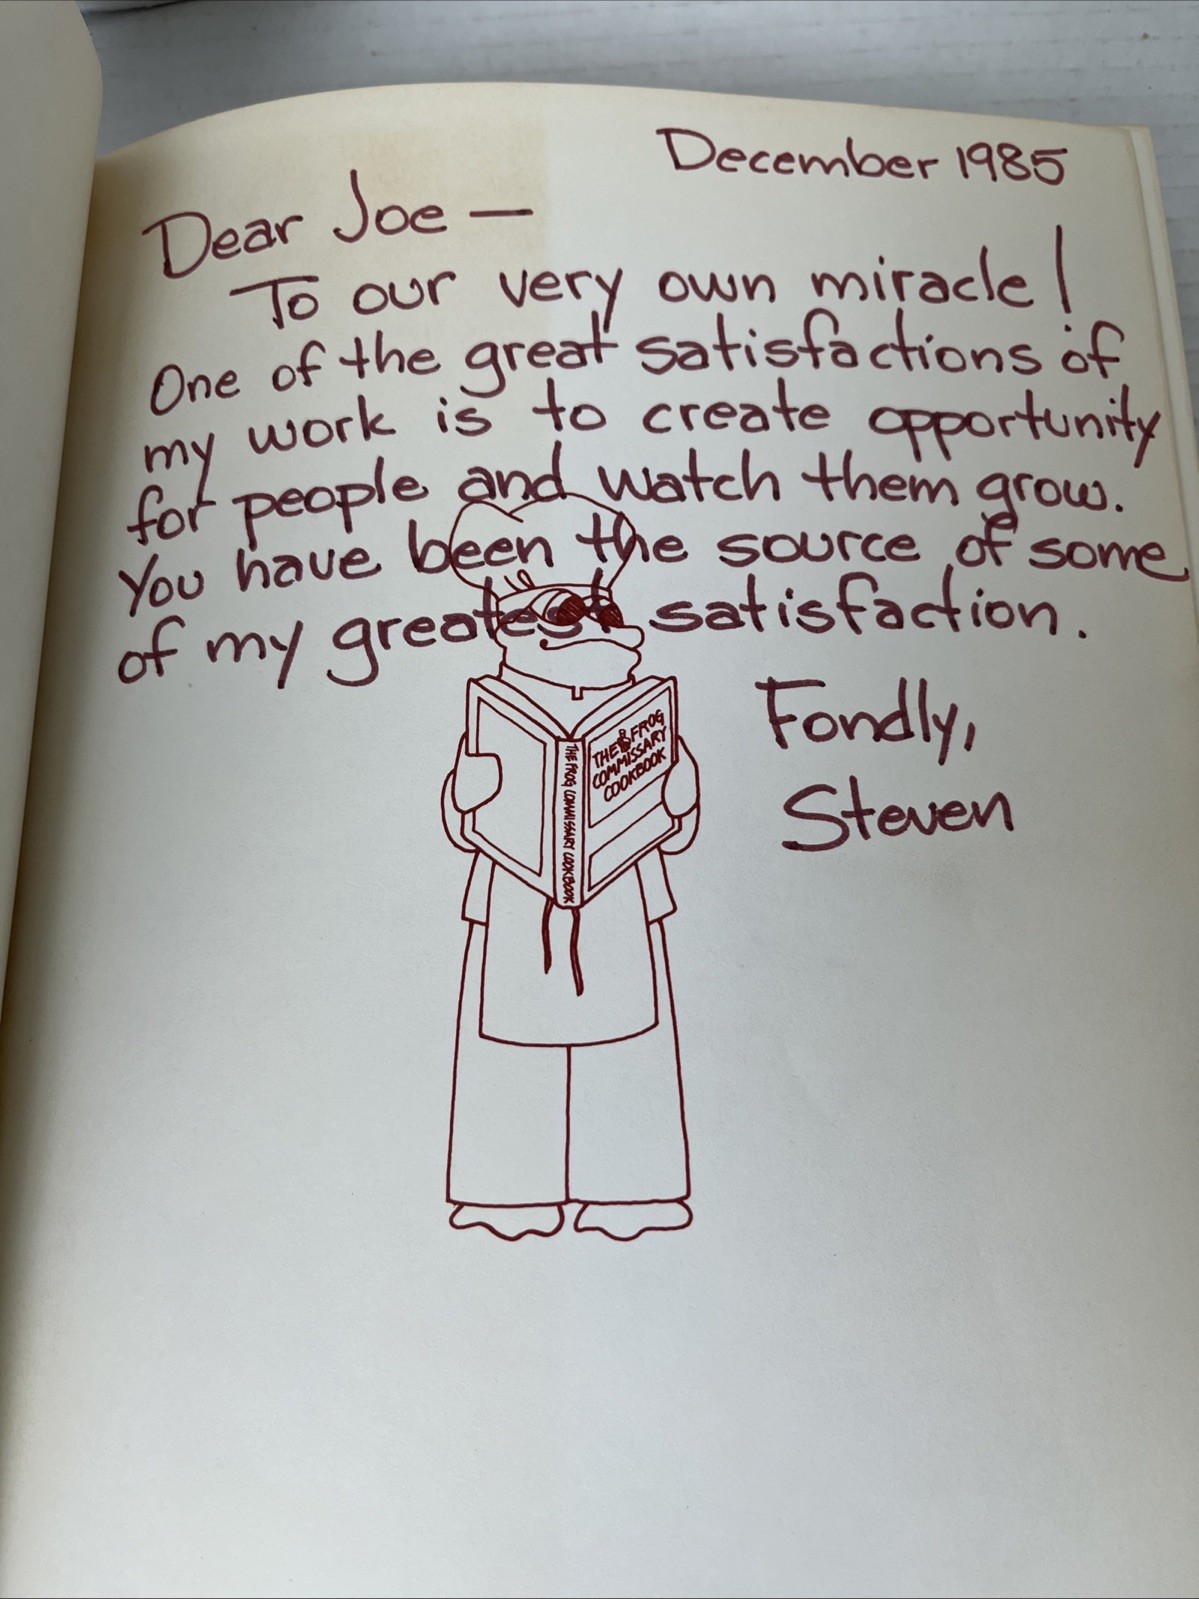 December 1985
Dear Joe —
To our very own miracle!
One of the great satisfactions of
my work is to create opportunity
for people and watch them grow.
You have been the source of some
of my greatest satisfaction.
Fondly,
Steven
THE FROG
COMMISSARY
COOKBOOK
THE FROG COMMISSARY COOKBOOK